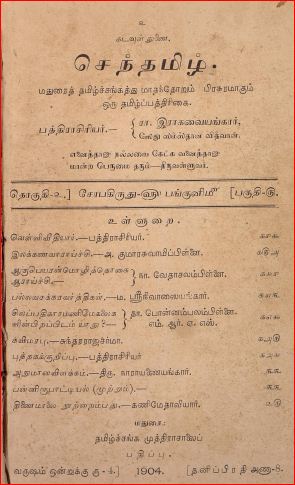 உ
கடவுள் துணை.
செந்தமிழ்.
மதுரைத் தமிழ்ச்சங்கத்து மாதந்தோறும் பிரசுரமாகும்
ஒரு தமிழ்ப்பத்திரிகை.
பத்திராசிரியர்.— ரா. இராகவையங்கார்,
ஸேது ஸம்ஸ்தான வித்வான்.
எனைத்தானு நல்லவை கேட்க வனைத்தானு
மான்ற பெருமை தரும்—திருவள்ளுவர்.
தொகுதி-உ.] சோபகிருது-ளு பங்குனிமீ [பகுதி-ரு.
உள்ளுறை.
வெள்ளிவீதியார்.—பத்திராசிரியர்.
இலக்கணவாராய்ச்சி.—அ. குமாரசுவாமிப்பிள்ளை.
ஆகுபெயரன்மொழித்தொகை
ஆராய்ச்சி.— நா. வேதாசலம்பிள்ளை.
பல்லவச்சக்கரவர்த்திகள்.—ம. ஸ்ரீநிவாஸையங்கார்.
சிலப்பதிகாரமணிமேகலை
களின்பிறப்பிடம் யாது?— நா. பொன்னம்பலம்பிள்ளை.
எம். ஆர். ஏ. எஸ்.
சுந்தரராஜசர்மா.
புத்தகக்குறிப்பு.—பத்திராசிரியர்
திரு. நாராயணையங்கார்.
பன்னிருபாட்டியல் (முற்றும்).—
திணைமாலை நூற்றைம்பது.—கணிமேதாவியார்.
மதுரை:
தமிழ்ச்சங்க முத்திராசாலைப்
பதிப்பு.
வருஷம் ஒன்றுக்கு ரூ-4.] 1904. [தனிப்பிரதி அணா-8.